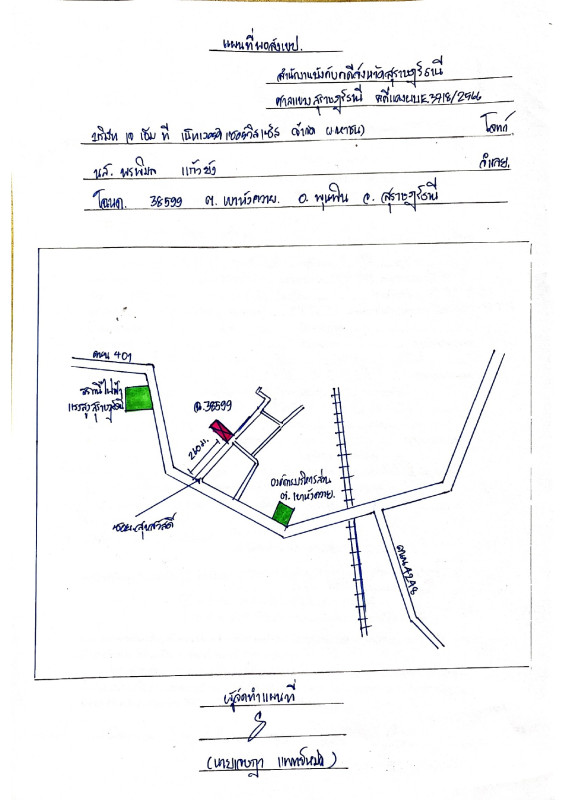 แผนที่พอสังเขป.
สำนักงานบังคับคดีจังหวัดสุราษฎร์ธานี
ศาลแขวงสุราษฎร์ธานี คดีแดง ผบE3918/2566
บริษัท เจ เอ็ม ที เน็ทเวอร์ค เซอร์วิสเซ็ส จำกัด (มหาชน) โจทก์
น.ส. พรพิมล แก้วยัง จำเลย.
โฉนด. 38599 ต. เขาหัวควาย. อ. พุนพิน จ. สุราษฎร์ธานี
ถนน 401
สถานีไฟฟ้า
แรงสูงสุราษฎร์ธานี
ฉ.38599
260 ม.
องค์การบริหารส่วน
ต. เขาหัวควาย.
ซอยสุขสวัสดิ์
ถนน 4248
ผู้จัดทำแผนที่